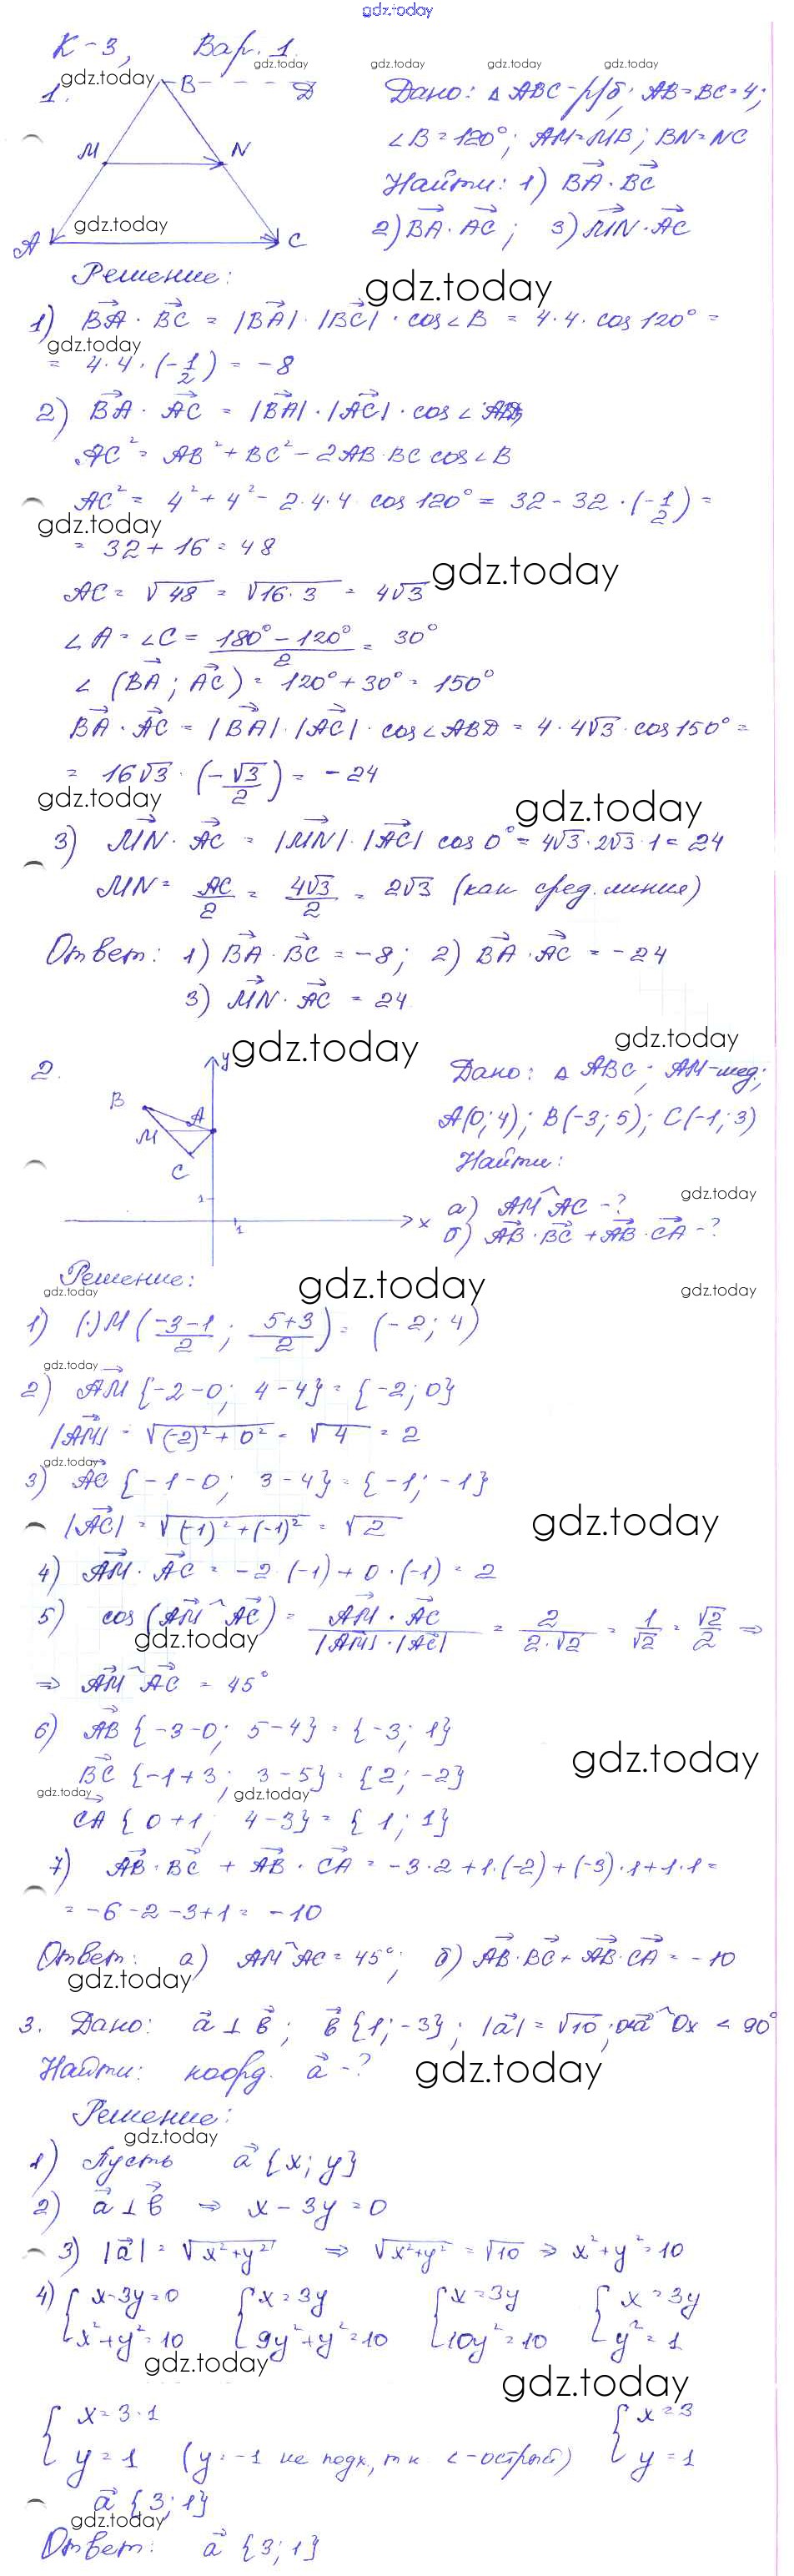 gdz.today
К-3, Вар. 1.
gdz.today gdz.today gdz.today gdz.today
1. B D Дано: △ ABC - р/б; AB=BC=4;
M N ∠B = 120°; AM=MB; BN=NC
Найти: 1) BA · BC
gdz.today
A C 2) BA · AC; 3) MN · AC
Решение:
gdz.today
1) BA · BC = |BA| · |BC| · cos∠B = 4·4·cos 120° =
gdz.today
= 4·4·(-1/2) = -8
2) BA · AC = |BA| · |AC| · cos∠ABD
AC² = AB² + BC² - 2AB·BC cos∠B
AC² = 4² + 4² - 2·4·4 cos 120° = 32 - 32·(-1/2) =
gdz.today
= 32 + 16 = 48
gdz.today
AC = √48 = √16·3 = 4√3
∠A = ∠C = (180° - 120°)/2 = 30°
∠ (BA; AC) = 120° + 30° = 150°
BA · AC = |BA| · |AC| · cos∠ABD = 4·4√3·cos150° =
= 16√3 · (-√3/2) = -24
gdz.today gdz.today
3) MN · AC = |MN| · |AC| cos 0° = 4√3·2√3·1 = 24
MN = AC/2 = 4√3/2 = 2√3 (как сред. линия)
Ответ: 1) BA · BC = -8; 2) BA · AC = -24
3) MN · AC = 24
gdz.today gdz.today
2. y Дано: △ ABC; AM-мед;
B A M C A(0; 4); B(-3; 5); C(-1; 3)
Найти:
gdz.today
1 1 x а) AM^AC -?
б) AB · BC + AB · CA -?
Решение:
gdz.today gdz.today gdz.today
1) (·)M ((-3-1)/2; (5+3)/2) = (-2; 4)
gdz.today
2) AM {-2-0; 4-4} = {-2; 0}
|AM| = √(-2)² + 0² = √4 = 2
gdz.today
3) AC {-1-0; 3-4} = {-1; -1}
gdz.today
|AC| = √(-1)² + (-1)² = √2
4) AM · AC = -2·(-1) + 0·(-1) = 2
5) cos (AM ^ AC) = (AM · AC)/(|AM| · |AC|) = 2/(2·√2) = 1/√2 = √2/2 ⇒
gdz.today
⇒ AM ^ AC = 45°
6) AB {-3-0; 5-4} = {-3; 1}
gdz.today
BC {-1+3; 3-5} = {2; -2}
gdz.today gdz.today
CA {0+1; 4-3} = {1; 1}
7) AB · BC + AB · CA = -3·2 + 1·(-2) + (-3)·1 + 1·1 =
= -6 - 2 - 3 + 1 = -10
Ответ: а) AM^AC = 45°; б) AB · BC + AB · CA = -10
gdz.today
3. Дано: a ⊥ b; b {1; -3}; |a| = √10; a ^ Ox < 90°
Найти: коорд. a -?
gdz.today
Решение:
gdz.today
1) Пусть a {x; y}
2) a ⊥ b ⇒ x - 3y = 0
3) |a| = √x²+y² ⇒ √x²+y² = √10 ⇒ x²+y² = 10
4) { x-3y=0 { x = 3y { x = 3y { x = 3y
x²+y²=10 9y²+y²=10 10y²=10 y²=1
gdz.today
gdz.today
{ x = 3·1 { x = 3
y = 1 (y = -1 не подх, т к ∠-острый) y = 1
a {3; 1}
gdz.today
Ответ: a {3; 1}